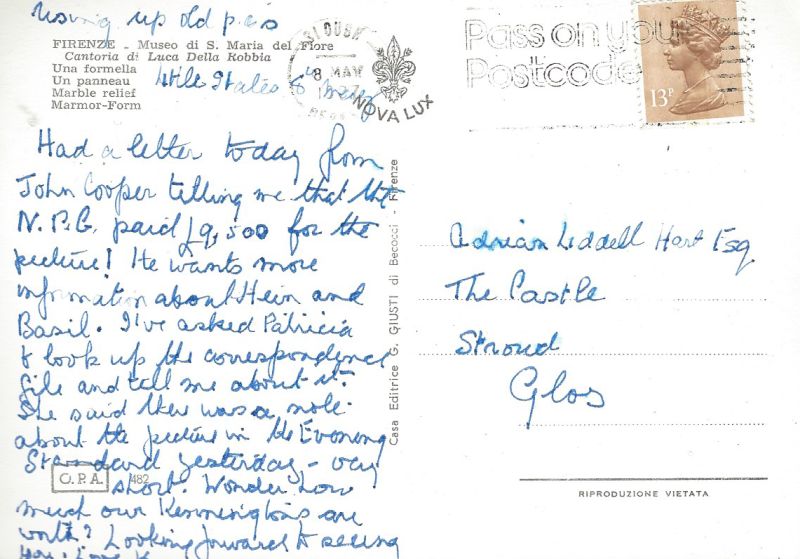 Using up old p.cs
FIRENZE - Museo di S. Maria del Fiore
Cantoria di Luca Della Robbia
Una formella
Un panneau
Marble relief
Marmor-Form
SLOUGH
8 MAY
NOVA LUX
Pass on your
Postcode
13P
Had a letter today from
John Cooper telling me that the
N.P.G. paid £9,500 for the
picture! He wants more
information about Hein and
Basil. I've asked Patricia
to look up the correspondence
file and tell me about it.
She said there was a note
about the picture in the Evening
Standard yesterday - very
short. Wonder how
much our Kenningtons are
worth? Looking forward to seeing
you. Love K
O.P.A. 482
Casa Editrice G. GIUSTI di Becocci - Firenze
Adrian Liddell Hart Esq
The Castle
Stroud
Glos
RIPRODUZIONE VIETATA